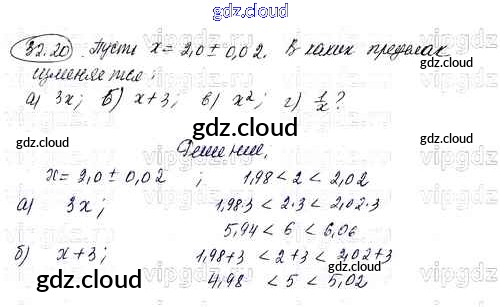 gdz.cloud
32.20 Пусть x = 2,0 ± 0,02. В каких пределах
изменяется:
gdz.cloud gdz.cloud
а) 3x; б) x+3; в) x²; г) 1/x?
gdz.cloud
Решение.
x = 2,0 ± 0,02 ; 1,98 < 2 < 2,02
gdz.cloud
а) 3x; 1,98·3 < 2·3 < 2,02·3
5,94 < 6 < 6,06
gdz.cloud
б) x+3; 1,98+3 < 2+3 < 2,02+3
gdz.cloud gdz.cloud
4,98 < 5 < 5,02